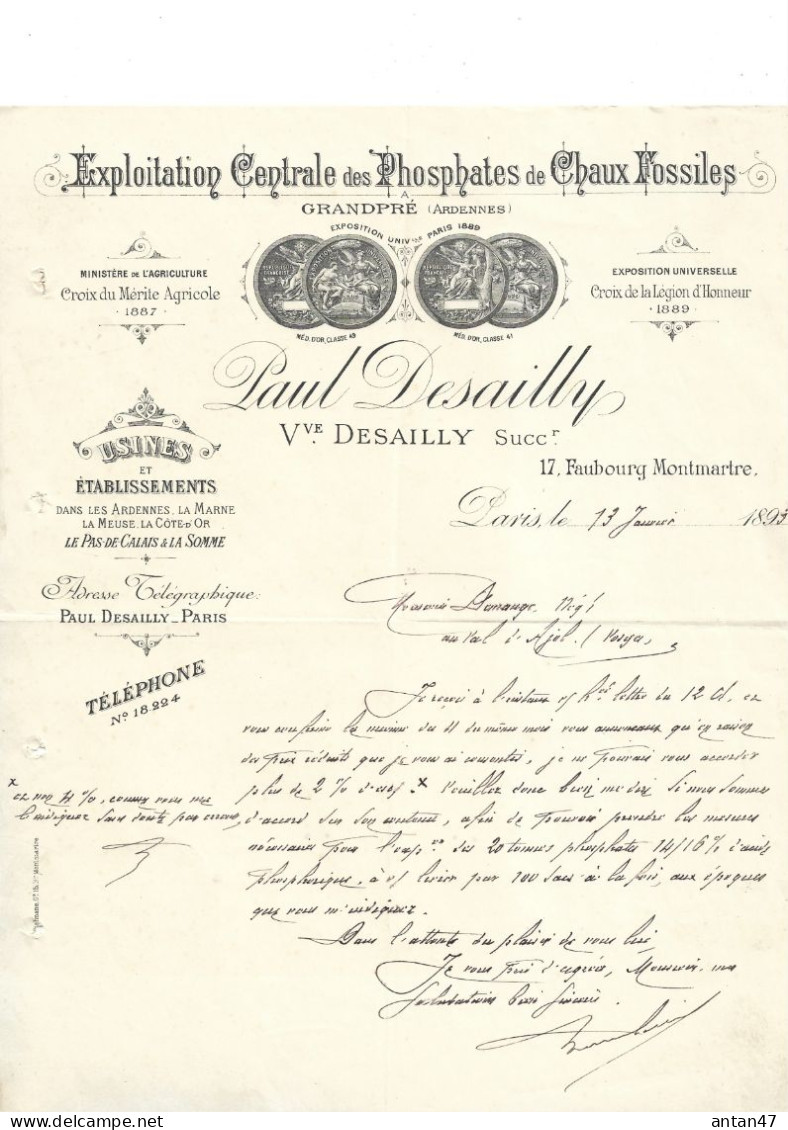 Exploitation Centrale des Phosphates de Chaux Fossiles
A
GRANDPRÉ (ARDENNES)
EXPOSITION UNIVlle PARIS 1889
MINISTÈRE DE L'AGRICULTURE
Croix du Mérite Agricole
· 1887 ·
MÉD. D'OR, CLASSE 49
MÉD. D'OR, CLASSE 41
EXPOSITION UNIVERSELLE
Croix de la Légion d'Honneur
· 1889 ·
Paul Desailly
Vve DESAILLY Succr
17, Faubourg Montmartre.
USINES
ET
ÉTABLISSEMENTS
DANS LES ARDENNES, LA MARNE
LA MEUSE, LA CÔTE-D'OR
LE PAS-DE-CALAIS & LA SOMME
Adresse Télégraphique:
PAUL DESAILLY_PARIS
TÉLÉPHONE
No 18.224
Paris, le 13 Janvier 1893
Monsieur Demange Négt
au Val d'Ajol. (Vosges)
Je reçois à l'instant v/ lettre du 12 ct, et
vous confirme la mienne du 11 du même mois vous annonçant qu'en raison
des prix réduits que je vous ai consentis, je ne pourrais vous accorder
plus de 2 % d'esc. x Veuillez donc bien me dire si nous sommes
d'accord sur son contenu, afin de pouvoir prendre les mesures
nécessaires pour l'expon des 20 tonnes phosphate 14/16 % d'acide
phosphorique, à v/ livrer par 100 sacs à la fois, aux époques
que vous m'indiquez.
Dans l'attente du plaisir de vous lire,
Je vous prie d'agréer, Monsieur, mes
Salutations bien sincères.
x
et non 4 %, comme vous me
l'indiquez sans doute par erreur,